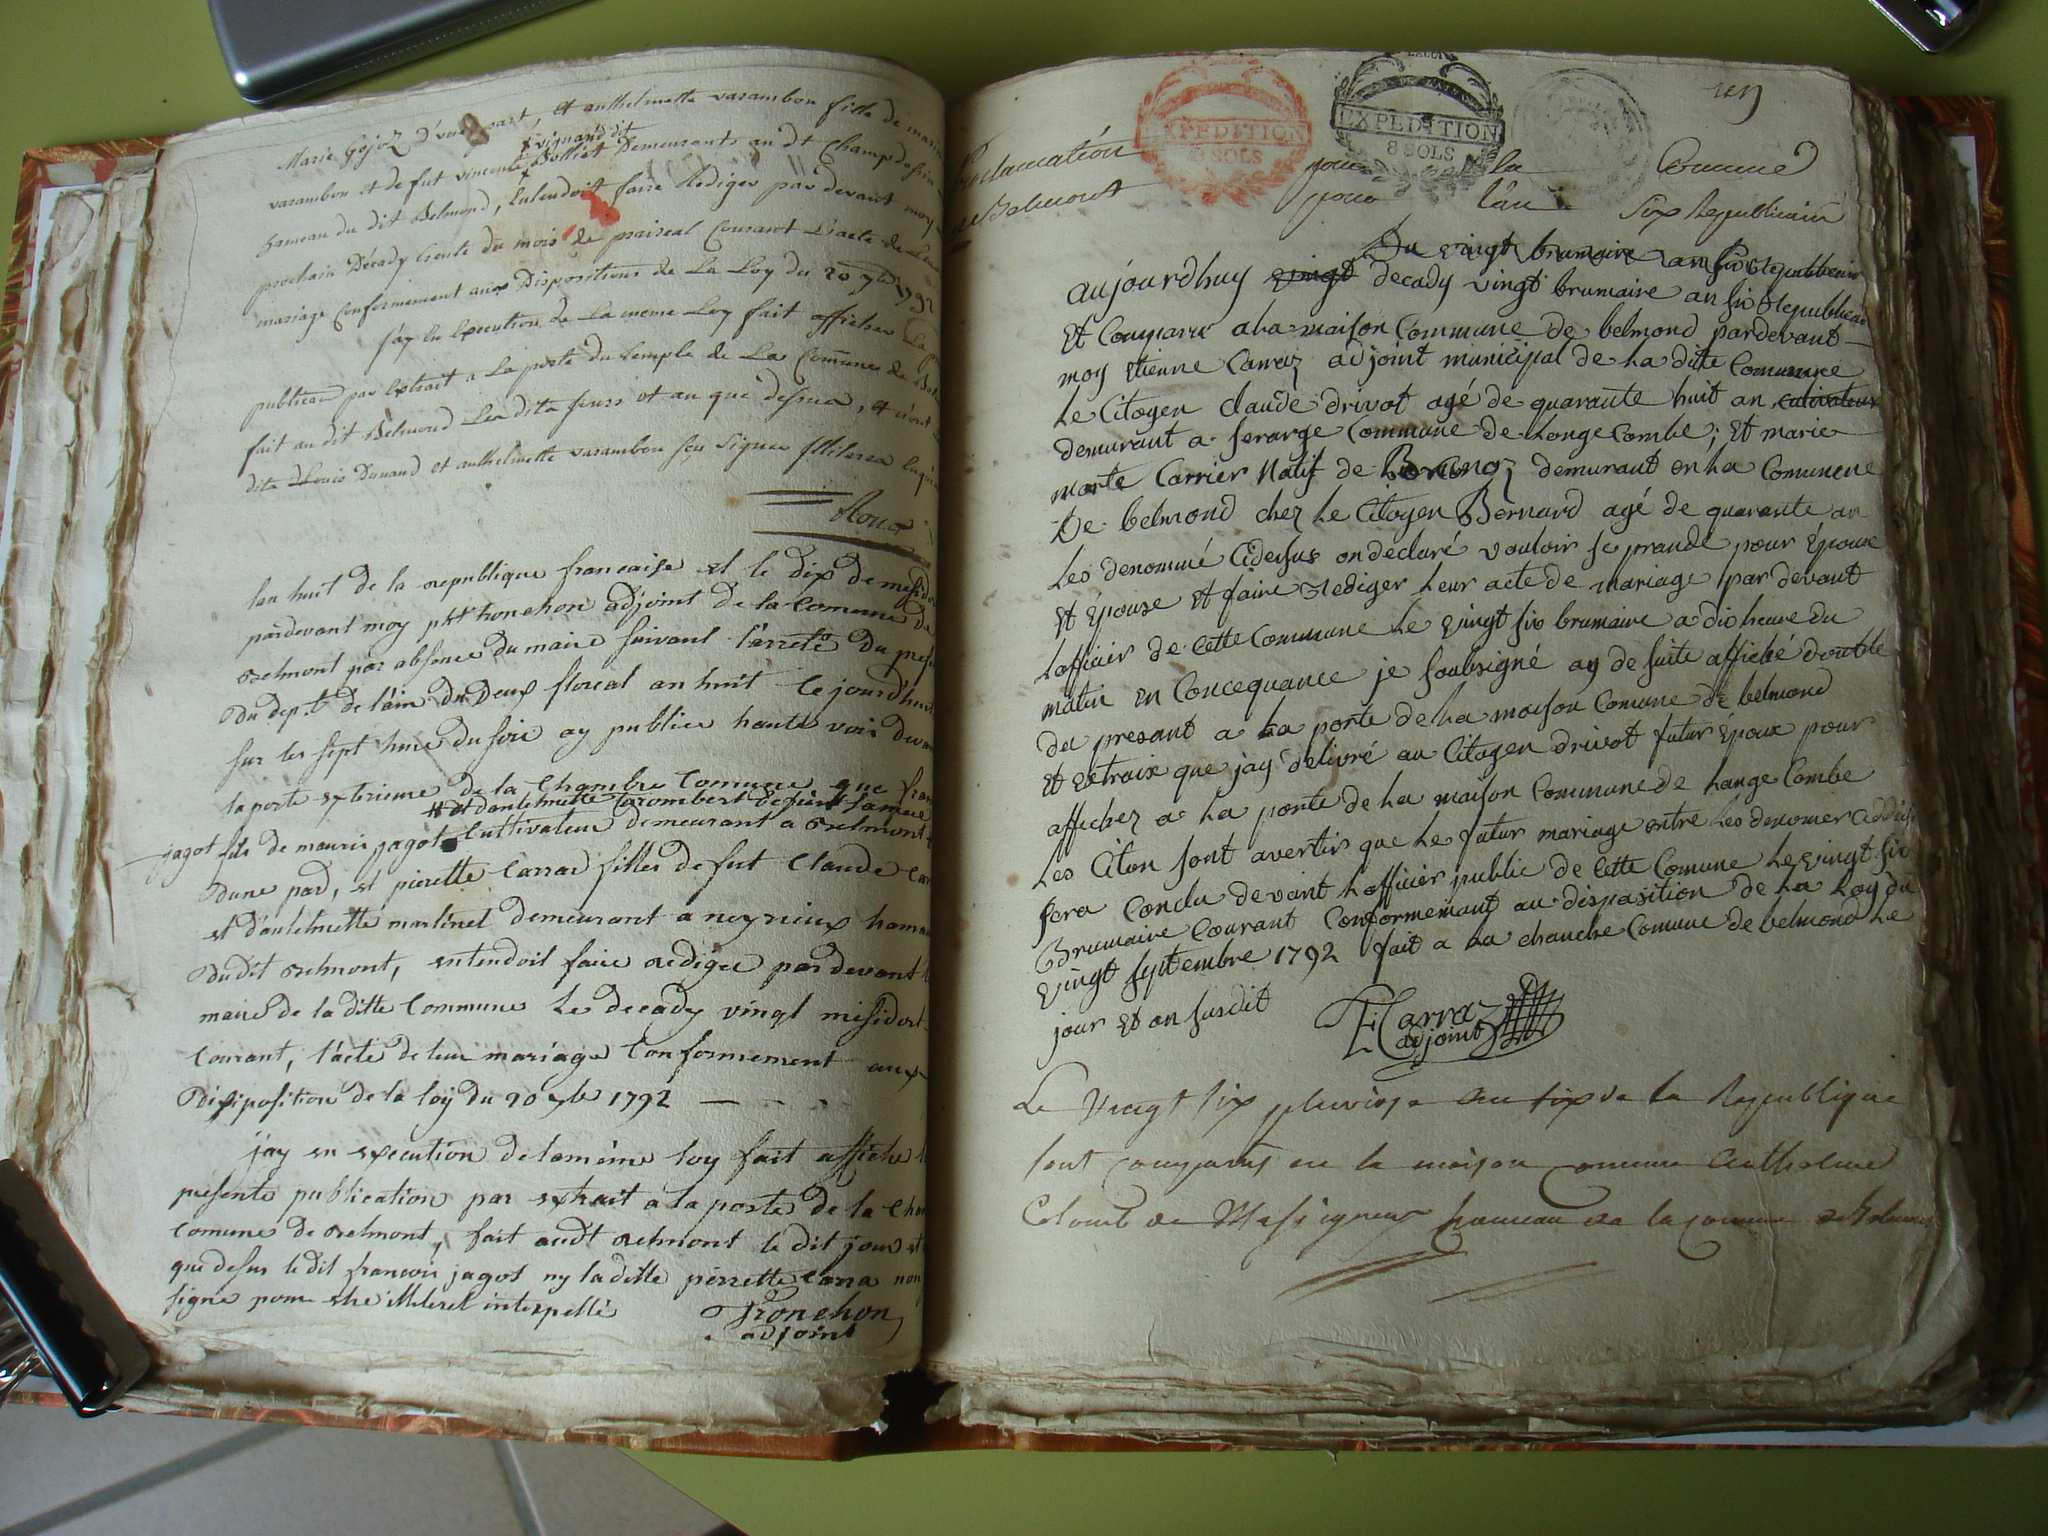 Marie Gojoz d'une part, et anthelmette varambon fille de marin
varambon et de fut vincente vignand dit Bolliet Demeurants au dt Champdossin
hameau du dit Belmond, Entendoit faire Rediger par devant moy
prochain Décady trente du mois de prairéal Courant L'acte de Leur
mariage Conformement aux Dispositions de La Loy du 20 7bre 1792
j'ay En Execution de La meme Loy fait afficher La
publication par Extrait a La porte du temple de La Commune de Bel
fait au dit Belmond Les dits jours et an que dessus, et n'ont
dits Louis Douand et anthelmette varambon sçu signer Illiteres
Roux
lan huit de la republique francaise et le dix de messidor
pardevant moy pht tronchon adjoint de la Comune de
Belmont par absence du maire suivant l'arreté du prefet
du dept. de l'ain du Deux floreal an huit le jourdhui
sur les sept heure du soir ay publier haute voix devant
la porte exterieure de la Chambre Comune que fran
# et danthelmette Carombert
jagot fils de mauris jagot Cultivateur demeurant a Belmont
dune pard, et pierette Carraz filles de fut Claude Car
et d'anthelmette martinet demeurant a neyrieux hameau
dudit Belmont, entendoit faire rediger par devant le
maire de la ditte Commune le decady vingt mesidor
Courant, l'acte de leur mariage Conformement aux
Disiposition de la loy du 20 7bre 1792
j'ay en execution de la même loy fait affiche la
presente publication par extrait a la porte de la Cha
comune de Belmont, fait audt Belmont le dit jour et
que desus le dit francois jagot ny la ditte pierrette Carra non
signe pour etre illiteret interpellé
Tronchon
adjoint
EXPEDITION
8 SOLS
EXPEDITION
8 SOLS
Proclamation pour la Comune
de Belmont pour l'an Six Republicain
Du vingt brumaire an six Republicain
aujourdhuy vingt decady vingt brumaire an six Republicain
Et Comparu a la maison Commune de belmond pardevant
moy Etienne Carraz adjoint municipal de La dite Commune
Le Citoyen claude drivot agé de quarante huit an cultivateur
demurant a serarge Commune de Longe Combe; Et marie
marte Carrier Natif de demurant en La Commune
De belmond chez Le Citoyen Bernard agé de quarante an
Les denommé Cidessus on declaré vouloir se prande pour Epoux
Et Epouse Et faire Rediger Leur acte de mariage par devant
Lafficier de cette Commune Le vingt six brumaire a dix heure du
matin en Concequance je soubsigné ay de suite affiché double
du presant a La porte de La maison Comune de belmond
Et Extraix que jay delivré au Citoyen drivot futur Epoux pour
afficher a La porte de La maison Commune de Lange Combe
Les Citon sont avertis que Le futur mariage entre Les denomer Cidesus
sera Conclu devant Lofficier public de Cette Comune Le vingt six
Brumaire Courant Conformemant au disposition de La Loy du
vingt septembre 1792 fait a La chambre Comune de belmond Le
jour Et an susdit
E Carraz
adjoint
Le Vingt six pluviose an six de la Republique
sont comparus en la maison comune Anthelme
Colomb de Massigneux hameau de la comune de Belmont